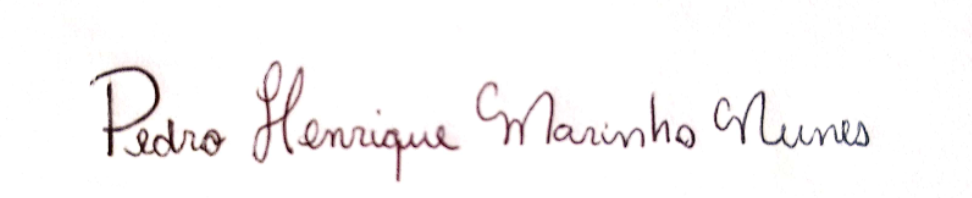 Pedro Henrique Marinho Nunes